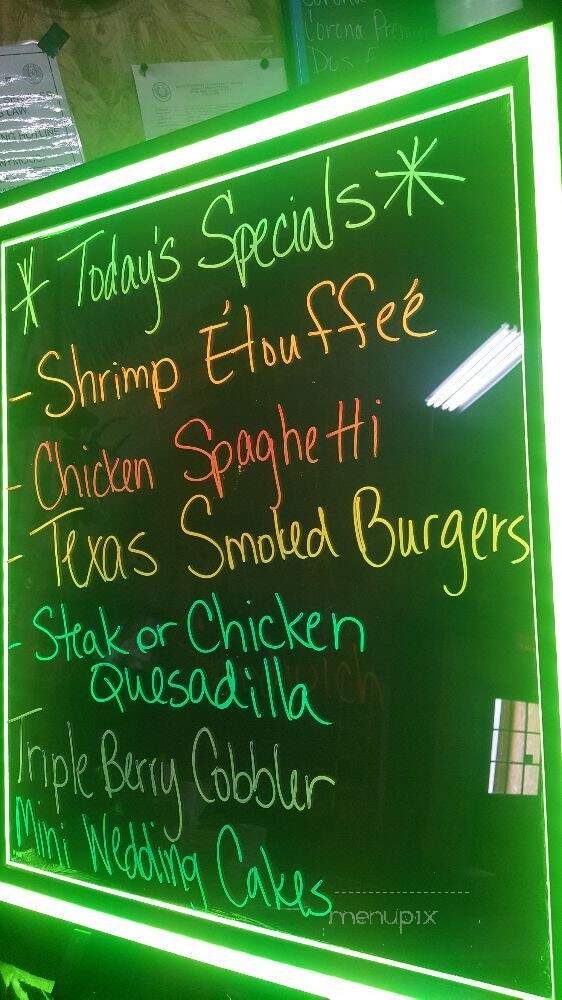 Corona Premier
Dos
LAW
* Today's Specials *
- Shrimp Étouffeé
- Chicken Spaghetti
- Texas Smoked Burgers
- Steak or Chicken
Quesadilla
Triple Berry Cobbler
Mini Wedding Cakes
menupix